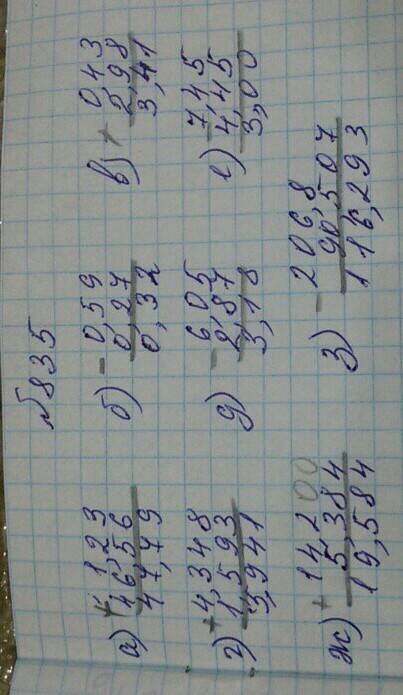 №835
а) + 1,23
46,56
47,79
б) - 0,59
0,27
0,32
в) + 0,43
2,98
3,41
г) + 4,348
1,593
3,941
д) - 6,05
2,87
3,18
е) - 7,45
4,45
3,00
ж) + 14,200
5,384
19,584
з) - 206,8
90,507
116,293